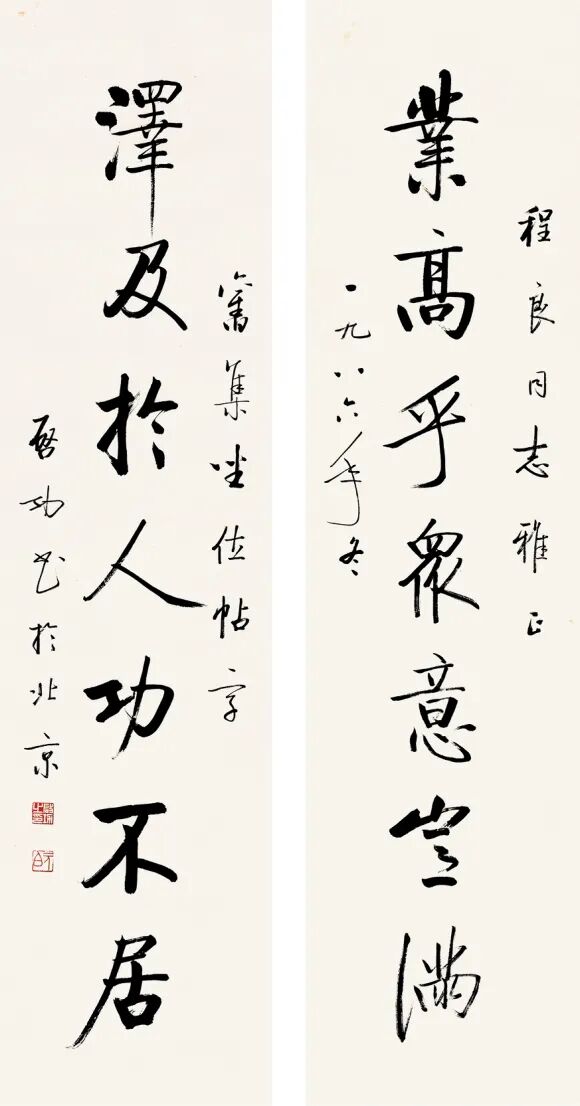 程良同志雅正
業高乎眾意豈滿
一九八六年冬
舊集坐位帖字
澤及於人功不居
啓功書於北京